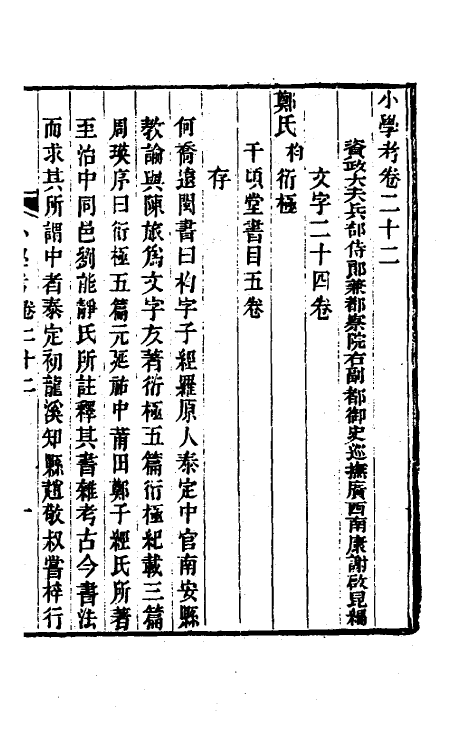 小學考卷二十二
資政大夫兵部侍郎兼都察院右副都御史巡撫廣西南康謝啟昆編
文字二十四卷
鄭氏杓衍極
千頃堂書目五卷
存
何喬遠閩書曰杓字子經羅原人泰定中官南安縣
教諭與陳旅為文字友著衍極五篇衍極紀載三篇
周瑛序曰衍極五篇元延祐中莆田鄭子經氏所著
至治中同邑劉能靜氏所註釋其書雜考古今書法
而求其所謂中者泰定初龍溪知縣趙敬叔嘗梓行
小學考卷二十二
一